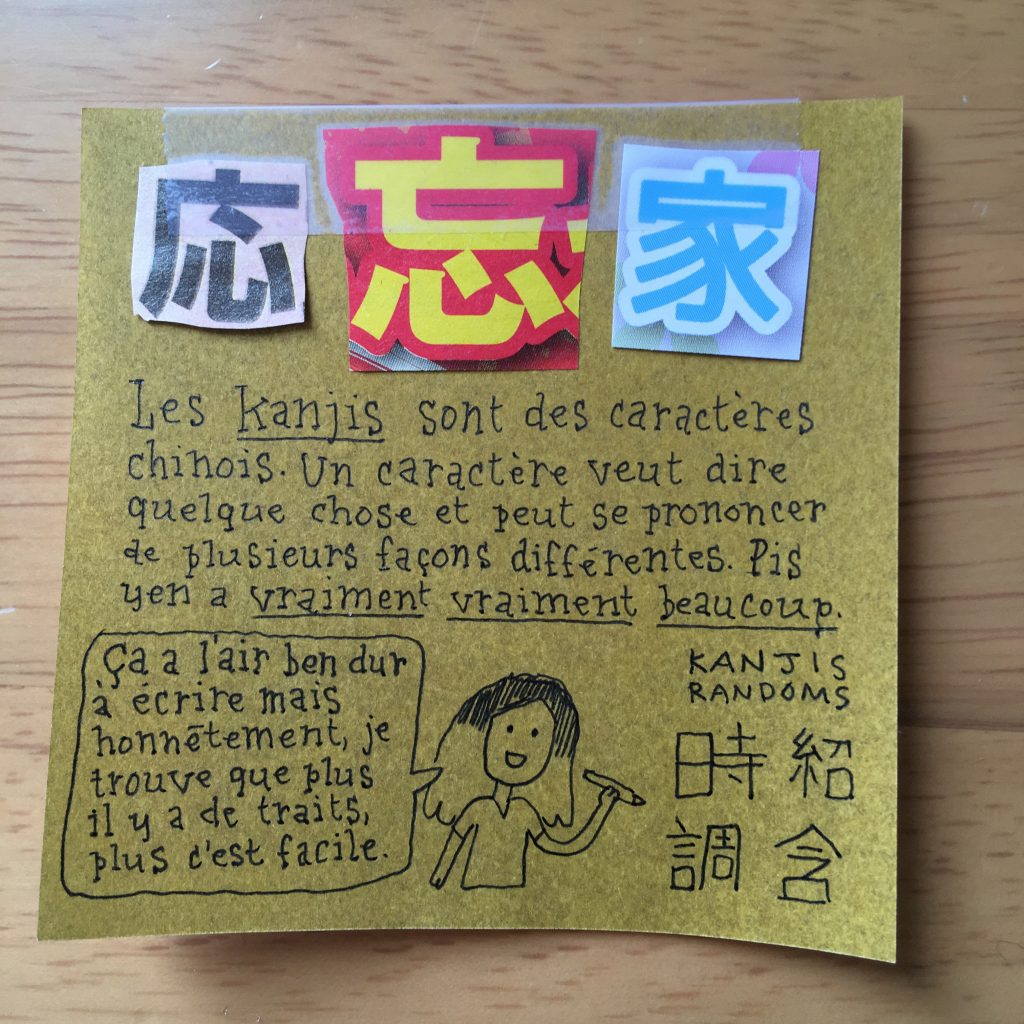 応 忘 家
Les kanjis sont des caractères
chinois. Un caractère veut dire
quelque chose et peut se prononcer
de plusieurs façons différentes. Pis
yen a vraiment vraiment beaucoup.
Ça a l'air ben dur
à écrire mais
honnêtement, je
trouve que plus
il y a de traits,
plus c'est facile.
KANJIS
RANDOMS
時 紹
調 含